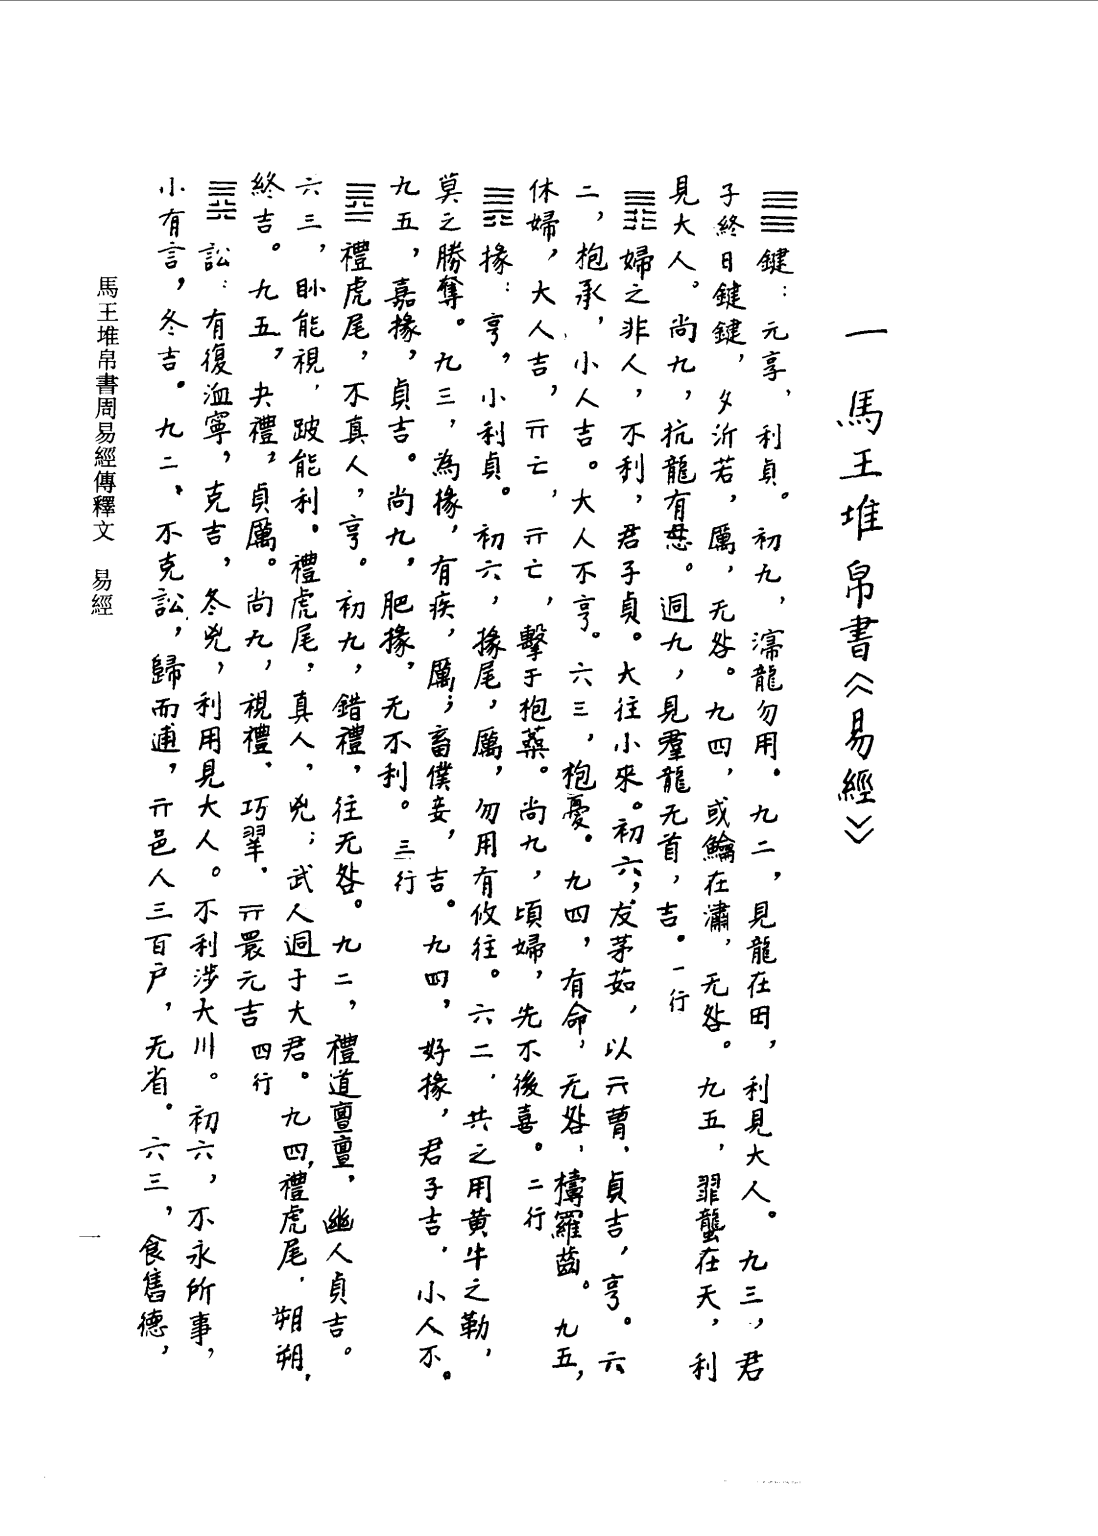 一 馬王堆帛書《易經》
䷀鍵：元享，利貞。初九，濡龍勿用。九二，見龍在田，利見大人。九三，君
子終日鍵鍵，夕沂若，厲，无咎。九四，或鱐在潚，无咎。九五，罪龍在天，利
見大人。尚九，抗龍有悬。迵九，見羣龍无首，吉。一行
䷋婦之非人，不利，君子貞。大往小來。初六，犮茅茹，以亓曹，貞吉，亨。六
二，抱承，小人吉。大人不亨。六三，枹憂。九四，有命，无咎，檮羅齒。九五，
休婦，大人吉，亓亡，亓亡，擊于枹蘃。尚九，頃婦，先不後喜。二行
䷠掾：亨，小利貞。初六，掾尾，厲，勿用有攸往。六二，共之用黄牛之勒，
莫之勝奪。九三，為掾，有疾，厲；畜僕妾，吉。九四，好掾，君子吉，小人不。
九五，嘉掾，貞吉。尚九，肥掾，无不利。三行
䷉禮虎尾，不真人，亨。初九，錯禮，往无咎。九二，禮道亶亶，幽人貞吉。
六三，眇能視，跛能利。禮虎尾，真人，兇；武人迵于大君。九四，禮虎尾，朔朔，
終吉。九五，夬禮，貞厲。尚九，視禮，巧睪，亓睘元吉 四行
䷅訟：有復洫寧，克吉，冬兇，利用見大人。不利涉大川。初六，不永所事，
小有言，冬吉。九二，不克訟，歸而逋，亓邑人三百户，无省。六三，食舊德，
馬王堆帛書周易經傳釋文 易經
一